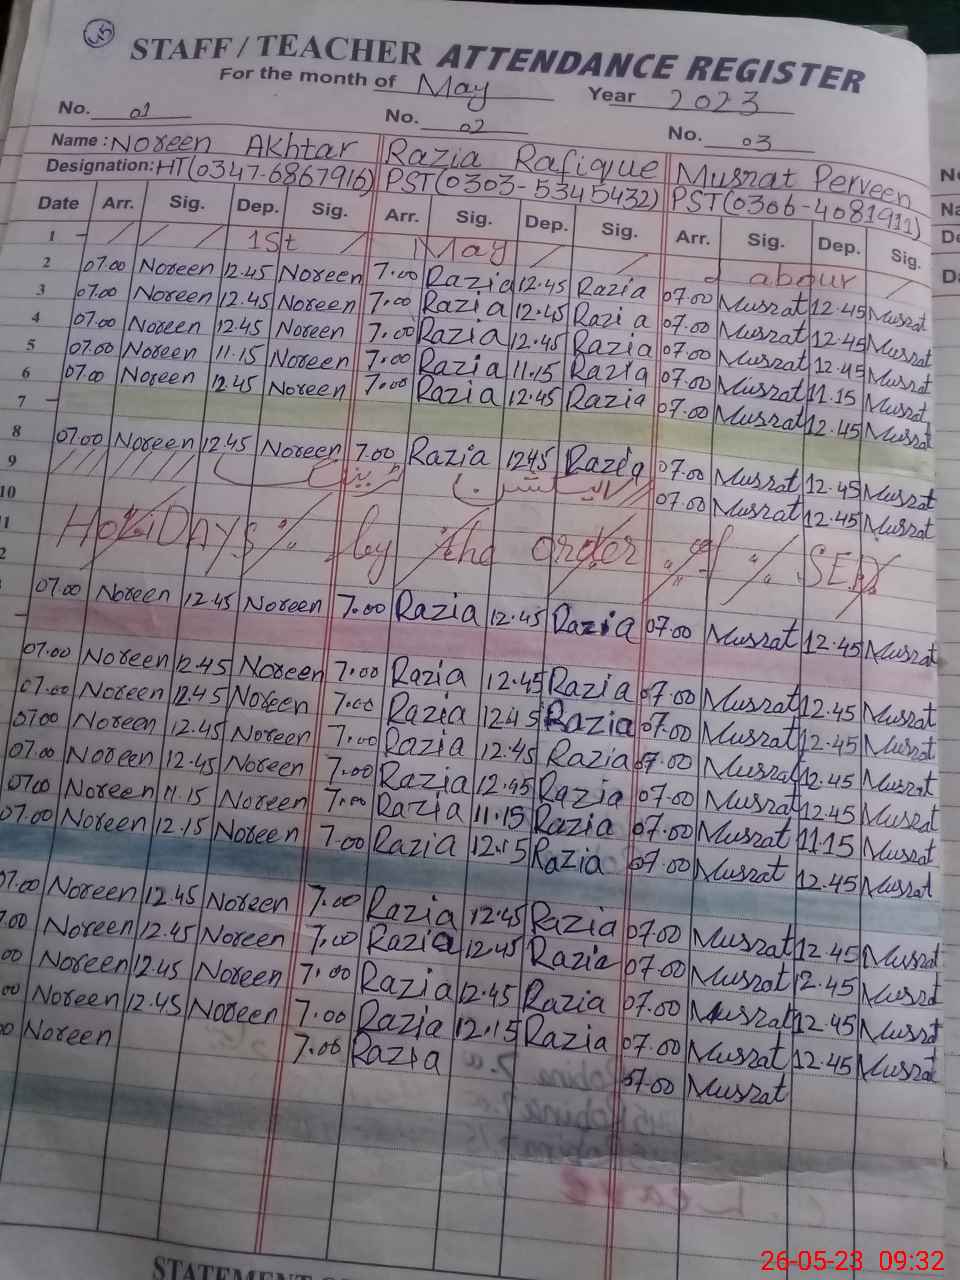 45
STAFF / TEACHER ATTENDANCE REGISTER
For the month of May Year 2023
No. 01 No. 02 No. 03
Name: Noreen Akhtar Razia Rafique Musrat Perveen
Designation: HT(0347-6867916) PST(0303-5345432) PST(0306-4081911)
Date Arr. Sig. Dep. Sig. Arr. Sig. Dep. Sig. Arr. Sig. Dep. Sig.
1 1st May Labour
2 07.00 Noreen 12.45 Noreen 7.00 Razia 12.45 Razia 07.00 Musrat 12.45 Musrat
3 07.00 Noreen 12.45 Noreen 7.00 Razia 12.45 Razia 07.00 Musrat 12.45 Musrat
4 07.00 Noreen 12.45 Noreen 7.00 Razia 12.45 Razia 07.00 Musrat 12.45 Musrat
5 07.00 Noreen 11.15 Noreen 7.00 Razia 11.15 Razia 07.00 Musrat 11.15 Musrat
6 07.00 Noreen 12.45 Noreen 7.00 Razia 12.45 Razia 07.00 Musrat 12.45 Musrat
7
8 07.00 Noreen 12.45 Noreen 7.00 Razia 1245 Razia 07.00 Musrat 12.45 Musrat
9 07.00 Musrat 12.45 Musrat
10
HOLIDAYS by the order of SED
07.00 Noreen 12.45 Noreen 7.00 Razia 12.45 Razia 07.00 Musrat 12.45 Musrat
07.00 Noreen 12.45 Noreen 7.00 Razia 12.45 Razia 07.00 Musrat 12.45 Musrat
07.00 Noreen 12.45 Noreen 7.00 Razia 1245 Razia 07.00 Musrat 12.45 Musrat
0700 Noreen 12.45 Noreen 7.00 Razia 12.45 Razia 07.00 Musrat 12.45 Musrat
07.00 Noreen 12.45 Noreen 7.00 Razia 12.45 Razia 07.00 Musrat 12.45 Musrat
0700 Noreen 11.15 Noreen 7.00 Razia 11.15 Razia 07.00 Musrat 11.15 Musrat
07.00 Noreen 12.15 Noreen 7.00 Razia 12.15 Razia 07.00 Musrat 12.45 Musrat
07.00 Noreen 12.45 Noreen 7.00 Razia 12.45 Razia 07.00 Musrat 12.45 Musrat
7.00 Noreen 12.45 Noreen 7.00 Razia 12.45 Razia 07.00 Musrat 12.45 Musrat
00 Noreen 12.45 Noreen 7.00 Razia 12.45 Razia 07.00 Musrat 12.45 Musrat
00 Noreen 12.45 Noreen 7.00 Razia 12.15 Razia 07.00 Musrat 12.45 Musrat
0 Noreen 7.00 Razia 07.00 Musrat
STATEMENT
26-05-23 09:32